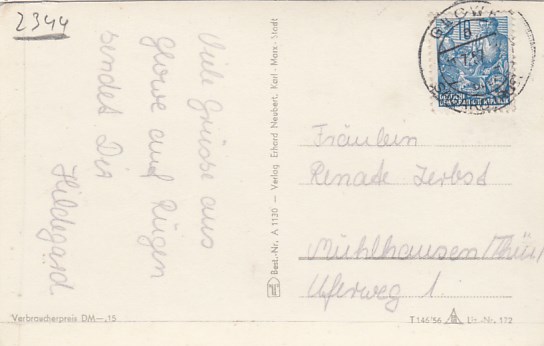 2344
GLOWE
Viele Grüsse aus
Glowe auf Rügen
sendet Dir
Hildegard
Best.-Nr. A 1130 – Verlag Erhard Neubert, Karl-Marx-Stadt
Fräulein
Renate Zerbst
Mühlhausen/Thür
Uferweg 1
Verbraucherpreis DM —,15
T 146/56 Liz.-Nr. 172